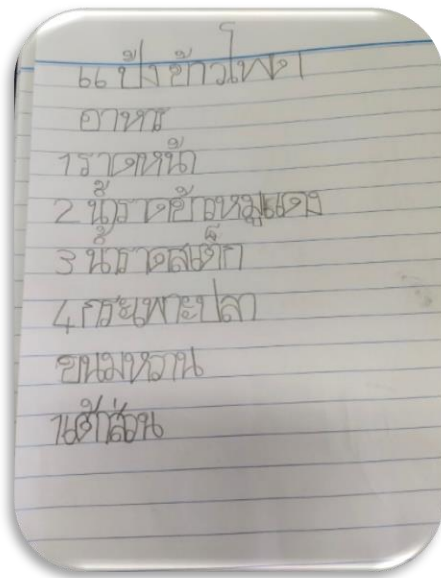 แป้งข้าวโพด
อาหาร
1 ราดหน้า
2 น้ำราดข้าวหมูแดง
3 น้ำราดสเต็ก
4 กระเพาะปลา
ขนมหวาน
1 เต้าส่วน